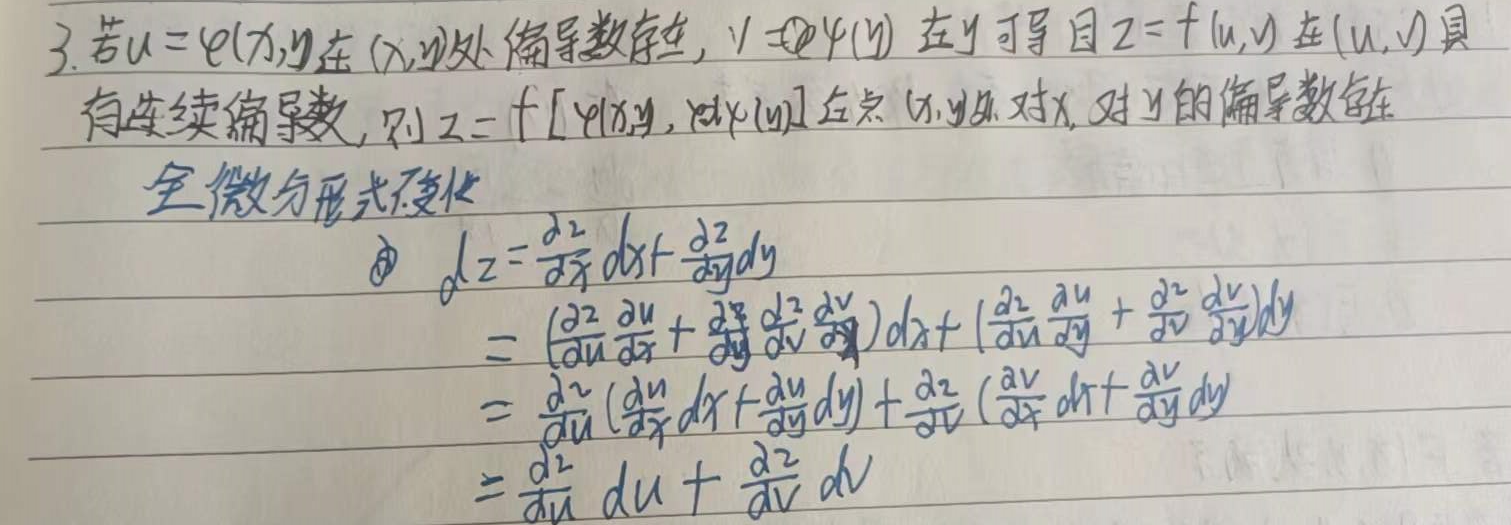 3. 若u=φ(x,y)在(x,y)处偏导数存在, v=ψ(y) 在y可导且z=f(u,v)在(u,v)具
有连续偏导数,则z=f[φ(x,y), ψ(y)]在点(x,y)处对x,对y的偏导数存在
全微分形式不变性
dz=∂z/∂x dx+∂z/∂y dy
=(∂z/∂u ∂u/∂x + ∂z/∂v ∂v/∂x)dx+(∂z/∂u ∂u/∂y + ∂z/∂v ∂v/∂y)dy
=∂z/∂u(∂u/∂x dx+∂u/∂y dy)+∂z/∂v(∂v/∂x dx+∂v/∂y dy)
=∂z/∂u du+∂z/∂v dv